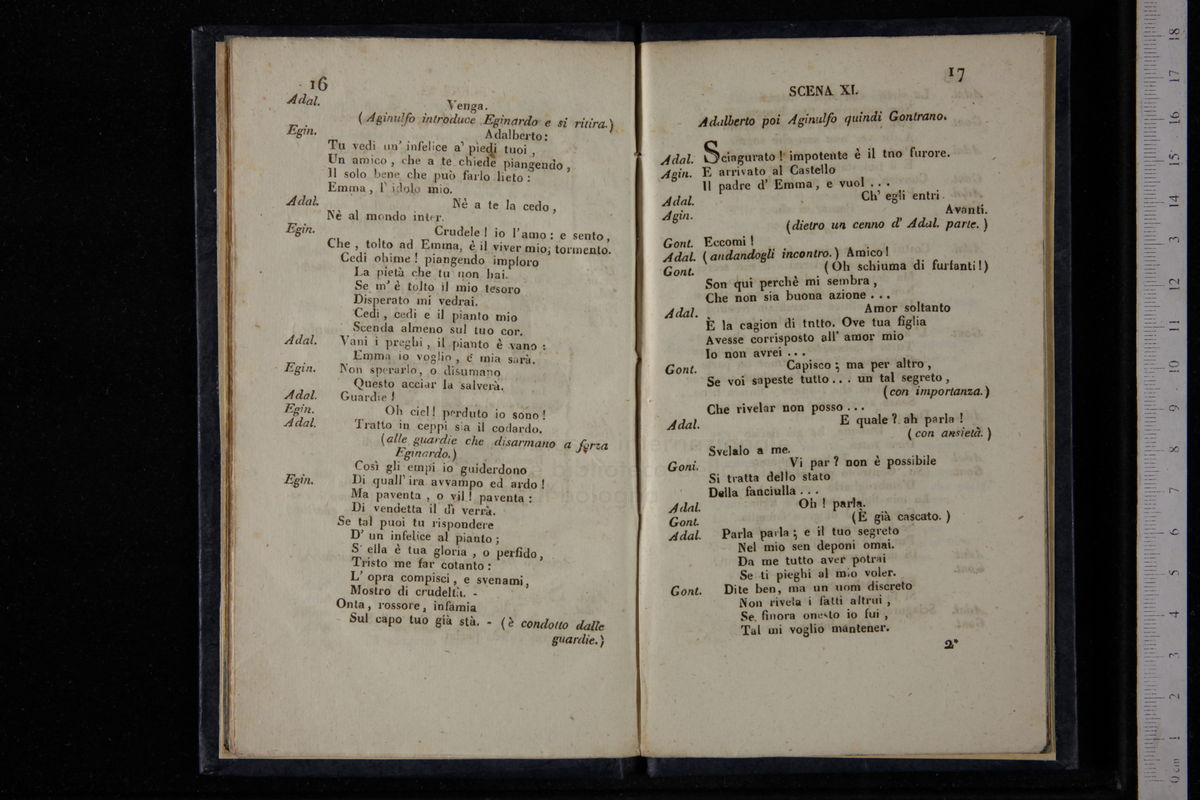 16
Adal. Venga.
(Aginulfo introduce Eginardo e si ritira.)
Egin. Adalberto:
Tu vedi un' infelice a' piedi tuoi,
Un amico, che a te chiede piangendo,
Il solo bene che può farlo lieto:
Emma, l' idolo mio.
Adal. Nè a te la cedo,
Nè al mondo inter.
Egin. Crudele! io l'amo: e sento,
Che, tolto ad Emma, è il viver mio, tormento.
Cedi ohime! piangendo imploro
La pietà che tu non hai.
Se m' è tolto il mio tesoro
Disperato mi vedrai.
Cedi, cedi e il pianto mio
Scenda almeno sul tuo cor.
Adal. Vani i preghi, il pianto è vano:
Emma io voglio, e mia sarà.
Egin. Non sperarlo, o disumano
Questo acciar la salverà.
Adal. Guardie!
Egin. Oh ciel! perduto io sono!
Adal. Tratto in ceppi sia il codardo.
(alle guardie che disarmano a forza
Eginardo.)
Così gli empi io guiderdono
Egin. Di quall' ira avvampo ed ardo!
Ma paventa, o vil! paventa:
Di vendetta il dì verrà.
Se tal puoi tu rispondere
D' un infelice al pianto;
S' ella è tua gloria, o perfido,
Tristo me far cotanto:
L' opra compisci, e svenami,
Mostro di crudeltà. -
Onta, rossore, infamia
Sul capo tuo già stà. - (è condotto dalle
guardie.)
17
SCENA XI.
Adalberto poi Aginulfo quindi Gontrano.
Adal. Sciagurato! impotente è il tno furore.
Agin. E arrivato al Castello
Il padre d' Emma, e vuol ...
Adal. Ch' egli entri.
Agin. Avanti.
(dietro un cenno d' Adal. parte.)
Gont. Eccomi!
Adal. (andandogli incontro.) Amico!
Gont. (Oh schiuma di furfanti!)
Son qui perchè mi sembra,
Che non sia buona azione ...
Adal. Amor soltanto
È la cagion di tntto. Ove tua figlia
Avesse corrisposto all' amor mio
Io non avrei ...
Gont. Capisco; ma per altro,
Se voi sapeste tutto ... un tal segreto,
(con importanza.)
Che rivelar non posso ...
Adal. E quale? ah parla!
(con ansietà.)
Svelalo a me.
Goni. Vi par? non è possibile
Si tratta dello stato
Della fanciulla ...
Adal. Oh! parla.
Gont. (È già cascato.)
Adal. Parla parla; e il tuo segreto
Nel mio sen deponi omai.
Da me tutto aver potrai
Se ti pieghi al mio voler.
Gont. Dite ben, ma un uom discreto
Non rivela i fatti altrui,
Se finora onesto io fui,
Tal mi voglio mantener.
2*
0 cm 1 2 3 4 5 6 7 8 9 10 11 12 13 14 15 16 17 18